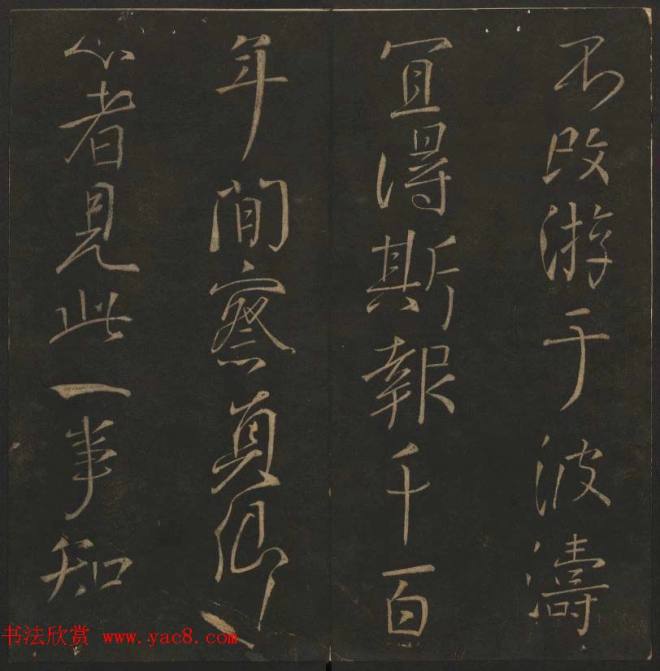 不改游于波濤
宜得斯報千百
年間察真卿之
心者見此一事知
书法欣赏 www.yac8.com